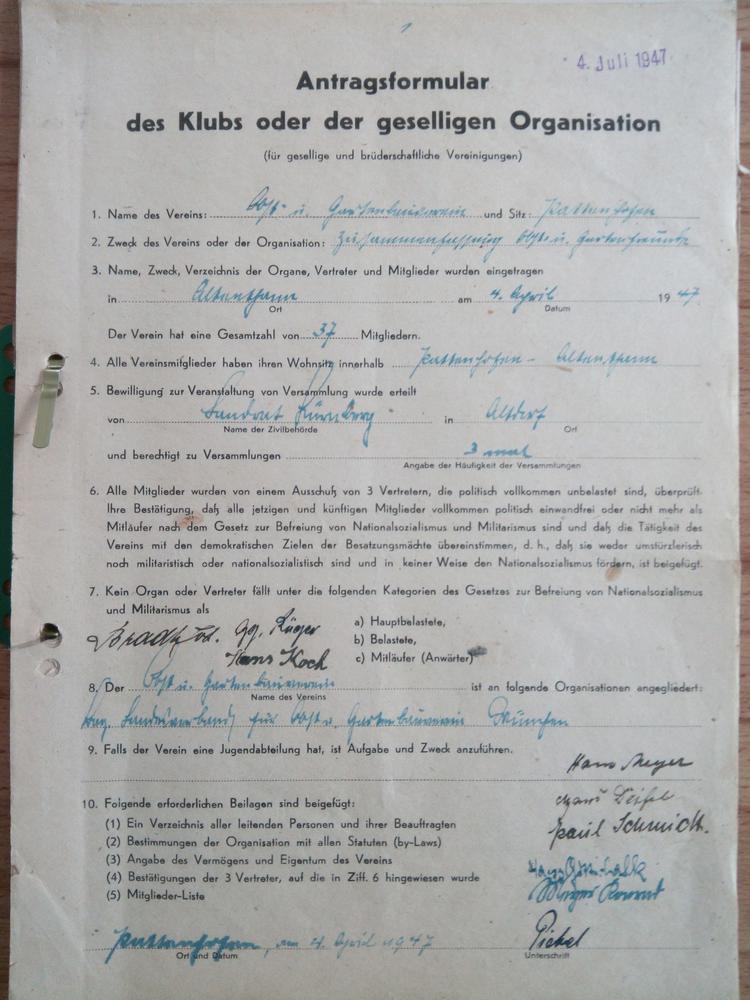 4. Juli 1947
Antragsformular
des Klubs oder der geselligen Organisation
(für gesellige und brüderschaftliche Vereinigungen)
1. Name des Vereins: Obst- u. Gartenbauverein und Sitz: Pattenhofen
2. Zweck des Vereins oder der Organisation: Zusammenfassung Obst- u. Gartenfreunde
3. Name, Zweck, Verzeichnis der Organe, Vertreter und Mitglieder wurden eingetragen
in Altenthann am 4. April 1947
Ort Datum
Der Verein hat eine Gesamtzahl von 37 Mitgliedern.
4. Alle Vereinsmitglieder haben ihren Wohnsitz innerhalb Pattenhofen - Altenthann
5. Bewilligung zur Veranstaltung von Versammlung wurde erteilt
von Landrat Nürnberg in Altdorf
Name der Zivilbehörde Ort
und berechtigt zu Versammlungen 3 mal
Angabe der Häufigkeit der Versammlungen
6. Alle Mitglieder wurden von einem Ausschuß von 3 Vertretern, die politisch vollkommen unbelastet sind, überprüft.
Ihre Bestätigung, daß alle jetzigen und künftigen Mitglieder vollkommen politisch einwandfrei oder nicht mehr als
Mitläufer nach dem Gesetz zur Befreiung von Nationalsozialismus und Militarismus sind und daß die Tätigkeit des
Vereins mit den demokratischen Zielen der Besatzungsmächte übereinstimmen, d. h., daß sie weder umstürzlerisch
noch militaristisch oder nationalsozialistisch sind und in keiner Weise den Nationalsozialismus fördern, ist beigefügt.
7. Kein Organ oder Vertreter fällt unter die folgenden Kategorien des Gesetzes zur Befreiung von Nationalsozialismus
und Militarismus als
a) Hauptbelastete,
Gg. Rüger
b) Belastete,
Hans Koch
c) Mitläufer (Anwärter)
8. Der Obst u. Gartenbauverein ist an folgende Organisationen angegliedert:
Name des Vereins
Bay. Landesverband für Obst u. Gartenbauverein München
9. Falls der Verein eine Jugendabteilung hat, ist Aufgabe und Zweck anzuführen.
Hans Meyer
10. Folgende erforderlichen Beilagen sind beigefügt:
Hans
(1) Ein Verzeichnis aller leitenden Personen und ihrer Beauftragten
Paul Schmidt.
(2) Bestimmungen der Organisation mit allen Statuten (by-Laws)
(3) Angabe des Vermögens und Eigentum des Vereins
(4) Bestätigungen der 3 Vertreter, auf die in Ziff. 6 hingewiesen wurde
(5) Mitglieder-Liste
Meyer Konrad
Pattenhofen, am 4. April 1947 Pickel
Ort und Datum Unterschrift